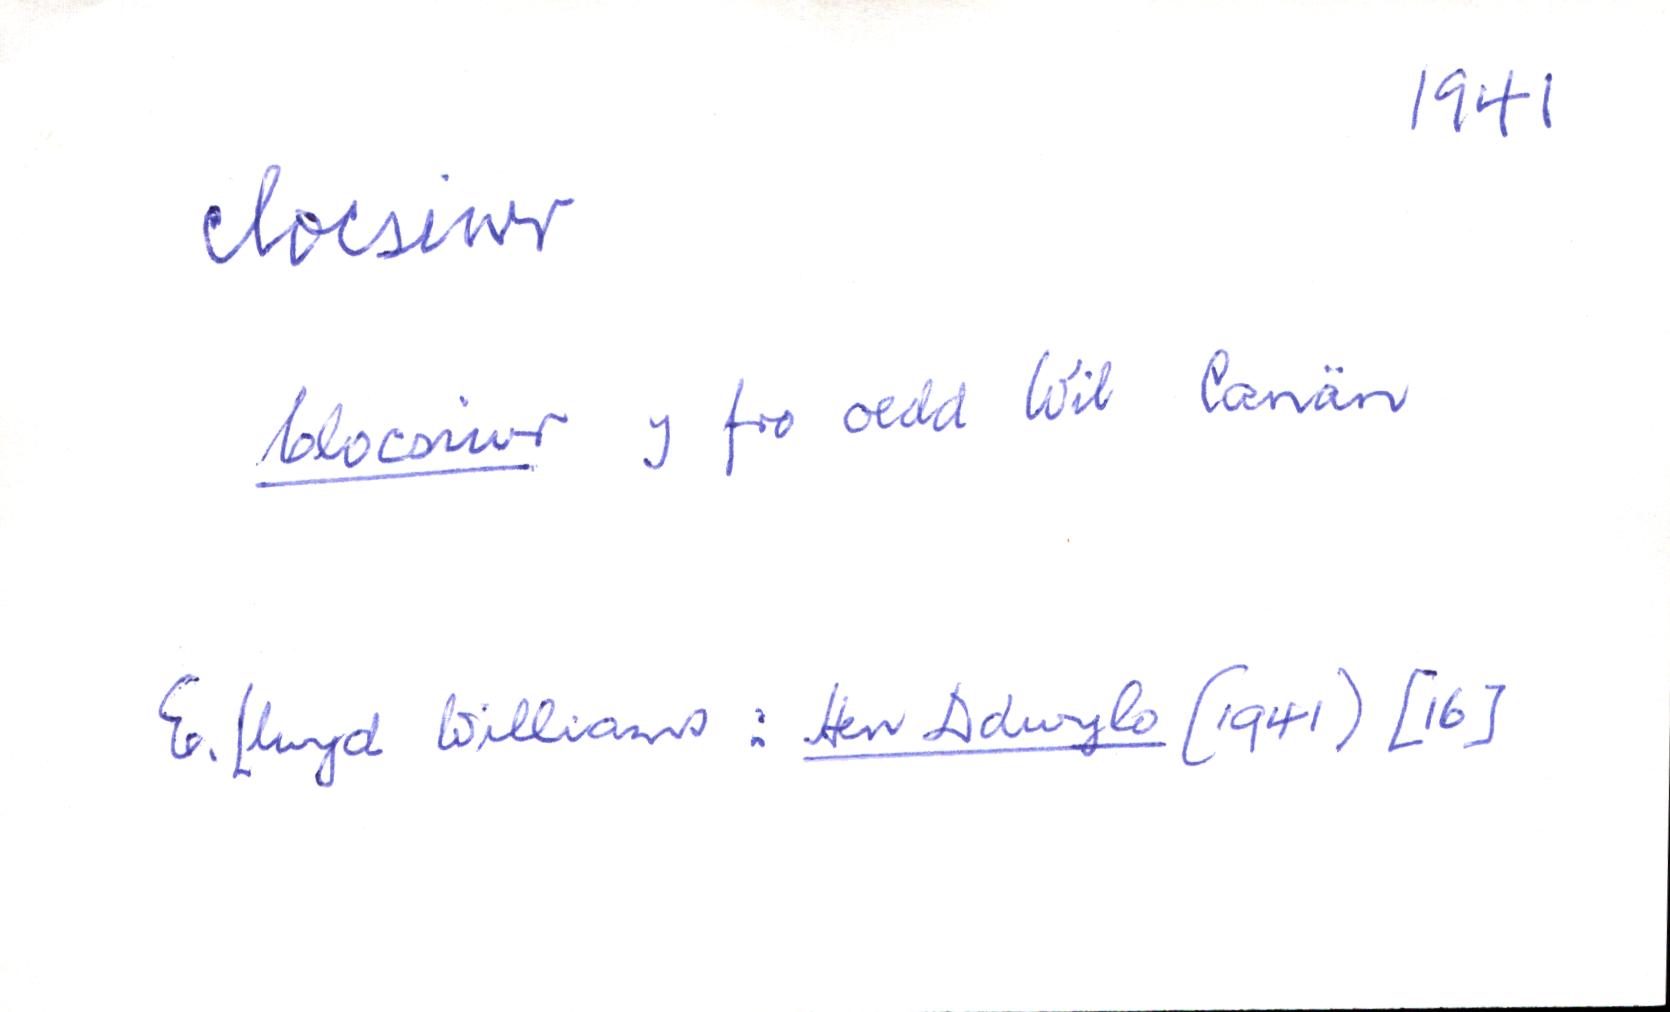 1941
clocsiwr
Clocsiwr y fro oedd Wil Canän
E. Llwyd Williams : Hen Ddwylo (1941) [16]